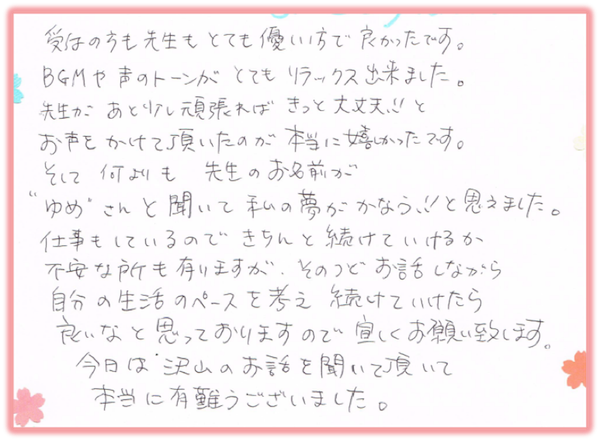 受付の方も先生もとても優しい方で良かったです。
BGMや声のトーンがとてもリラックス出来ました。
先生があと少し頑張ればきっと大丈夫!!と
お声をかけて頂いたのが本当に嬉しかったです。
そして何よりも 先生のお名前が
"ゆめ"さんと聞いて私の夢がかなう!!と思えました。
仕事もしているのできちんと続けていけるか
不安な所も有りますが、そのつどお話しながら
自分の生活のペースを考え 続けていけたら
良いなと思っておりますので宜しくお願い致します。
今日は沢山のお話を聞いて頂いて
本当に有難うございました。